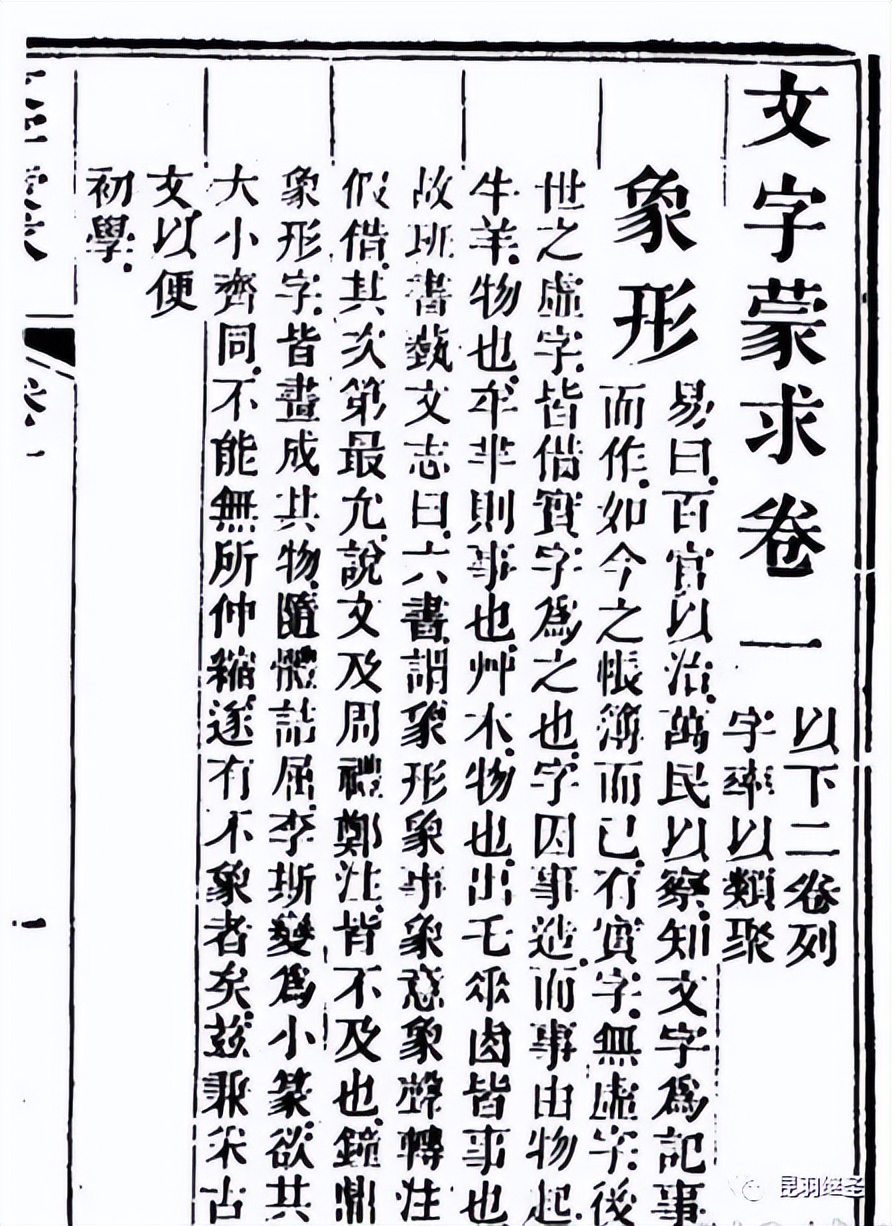 文字蒙求卷一
以下二卷列
字率以類聚
象形
易曰。百官以治。萬民以察。知文字爲記事
而作。如今之帳簿而已。有實字。無虛字。後
世之虛字。皆借實字爲之也。字因事造。而事由物起。
牛羊。物也。牟羋則事也。艸木。物也。出乇𠂹卥皆事也
故班書藝文志曰。六書。謂象形象事象意象聲轉注
假借。其次第最允。說文及周禮鄭注。皆不及也。鐘鼎
象形字。皆畫成其物。隨體詰屈。李斯變爲小篆。欲其
大小齊同。不能無所伸縮。遂有不象者矣。茲兼采古
文。以便
初學。
昆羽继圣